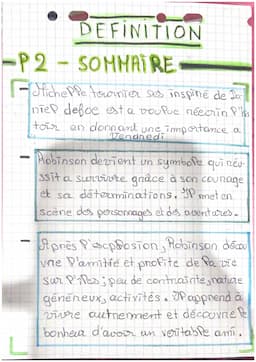 DEFINITION
-P2 - SOMMAIRE
- Michelle tournier ses inspiré de Da
niel defoe est a voulue réecrin l'his
toir an donnant une importance a
Vendredi
- Robinson devient un symbole qui réu-
ssit a survivre grâce à son courage
et sa déterminations. il met en
scène des personnages et des aventures.
- Après l'explosion, Robinson décou
vre l'amitié et profite de la vie
sur l'iles ; peu de contrainte, nature
généreux, activités. il apprend à
vivre autrement et découvre le
bonheur d'avoir un veritable ami.